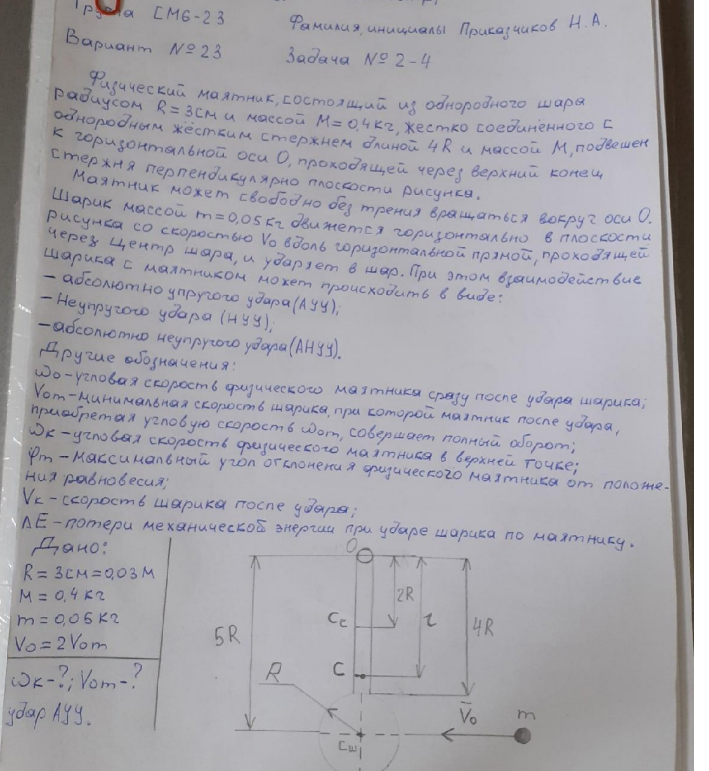 Группа СМ6-23 Фамилия, инициалы Приказчиков Н.А.
Вариант №23 Задача №2-4
Физический маятник, состоящий из однородного шара
радиусом R=3см и массой M=0,4кг, жестко соединённого с
однородным жёстким стержнем длиной 4R и массой M, подвешен
к горизонтальной оси O, проходящей через верхний конец
стержня перпендикулярно плоскости рисунка.
Маятник может свободно без трения вращаться вокруг оси O.
Шарик массой m=0,05кг движется горизонтально в плоскости
рисунка со скоростью V0 вдоль горизонтальной прямой, проходящей
через центр шара, и ударяет в шар. При этом взаимодействие
шарика с маятником может происходить в виде:
– абсолютно упругого удара(АУУ);
– Неупругого удара (НУУ);
– абсолютно неупругого удара(АНУУ).
Другие обозначения:
ω0-угловая скорость физического маятника сразу после удара шарика;
V0m-минимальная скорость шарика, при которой маятник после удара,
приобретая угловую скорость ω0m, совершает полный оборот;
ωк-угловая скорость физического маятника в верхней точке;
φm-максимальный угол отклонения физического маятника от положе-
ния равновесия;
Vк-скорость шарика после удара;
ΔE-потери механической энергии при ударе шарика по маятнику.
Дано:
R=3см=0,03м
M=0,4кг
m=0,05кг
V0=2V0m
ωк-?; V0m-?
удар АУУ.
O
2R
Cc
l
4R
5R
C
R
V0
m
Cш